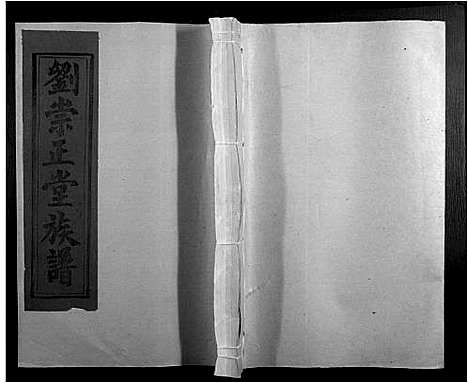 劉崇正堂族譜